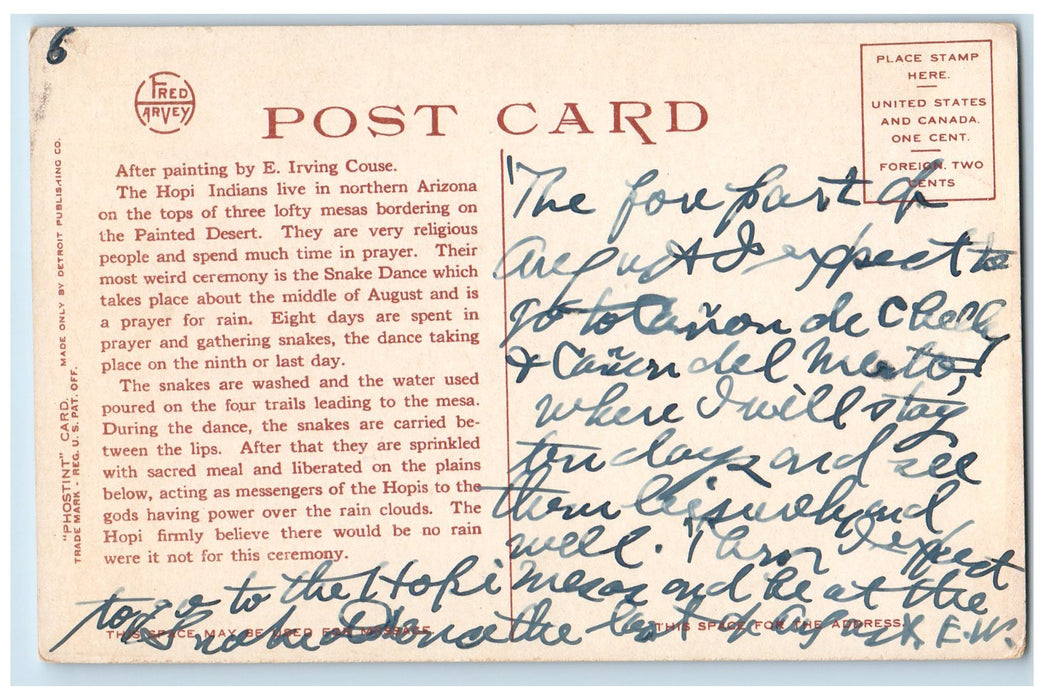 6
FRED HARVEY
POST CARD
PLACE STAMP
HERE.
UNITED STATES
AND CANADA.
ONE CENT.
FOREIGN, TWO
CENTS
"PHOSTINT" CARD.
MADE ONLY BY DETROIT PUBLISHING CO.
TRADE MARK - REG. U. S. PAT. OFF.
After painting by E. Irving Couse.
The Hopi Indians live in northern Arizona
on the tops of three lofty mesas bordering on
the Painted Desert. They are very religious
people and spend much time in prayer. Their
most weird ceremony is the Snake Dance which
takes place about the middle of August and is
a prayer for rain. Eight days are spent in
prayer and gathering snakes, the dance taking
place on the ninth or last day.
The snakes are washed and the water used
poured on the four trails leading to the mesa.
During the dance, the snakes are carried be-
tween the lips. After that they are sprinkled
with sacred meal and liberated on the plains
below, acting as messengers of the Hopis to the
gods having power over the rain clouds. The
Hopi firmly believe there would be no rain
were it not for this ceremony.
The fore part of
August I expect to
go to Cañon de Chelly
& Cañon del Muerto,
where I will stay
ten days and see
them leisurely and
well. Then I expect
to go to the Hopi mesas and be at the
Snake Dance the last of August. E.W.
THIS SPACE MAY BE USED FOR MESSAGE.
THIS SPACE FOR THE ADDRESS.